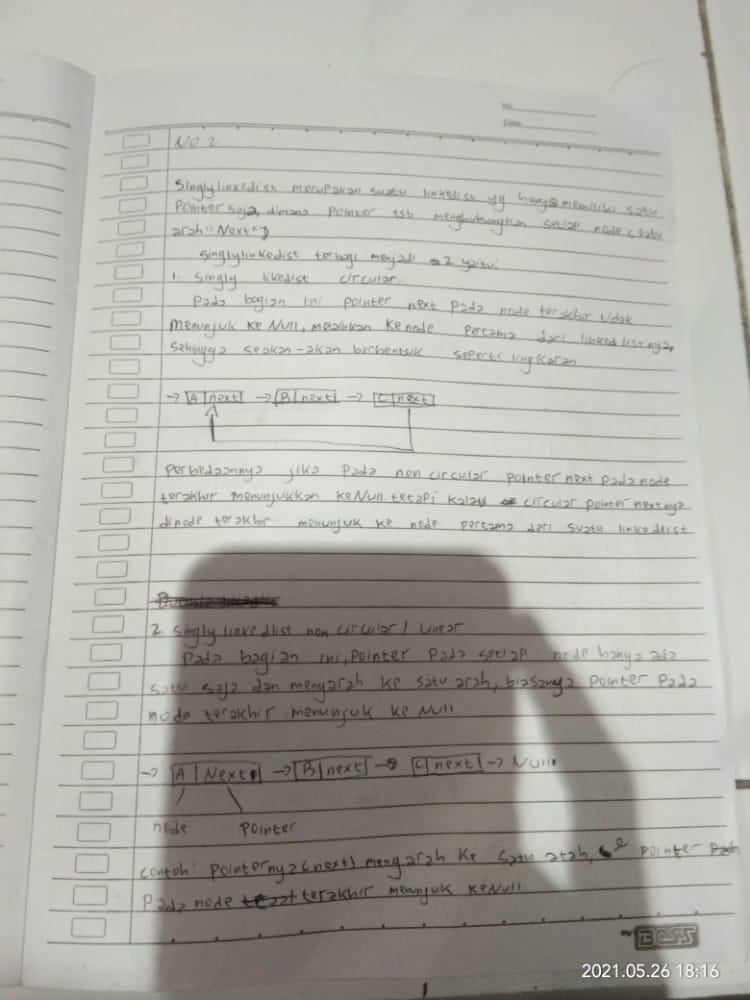 No.
Date:
NO 2
Singlylinkedlist merupakan suatu linkedlist yg hanya memiliki satu
Pointer saja, dimana pointer tsb menghubungkan setiap node (satu
arah "Next")
Singlylinkedlist terbagi menjadi 2 yaitu:
1. Singly likedlist circular.
Pada bagian ini pointer next pada node terakhir tidak
menunjuk ke Null, melainkan ke node pertama dari linked listnya,
sehingga seakan-akan berbentuk seperti lingkaran
→ A | next → B | next → C | next
Perbedaannya jika pada non circular pointer next pada node
terakhir menunjukkan ke Null tetapi kalau circular pointer nextnya
dinode terakhir menunjuk ke node pertama dari suatu linkedlist
2 Singly linkedlist non circular / Linear
Pada bagian ini, pointer pada setiap node hanya ada
satu saja dan mengarah ke satu arah, biasanya pointer pada
node terakhir menunjuk ke Null.
→ A | Next → B | next → C | next → Null.
node pointer
contoh: pointernya (next) mengarah ke satu arah, pointer
Pada node terakhir menunjuk ke Null
my BOSS
2021.05.26 18:16